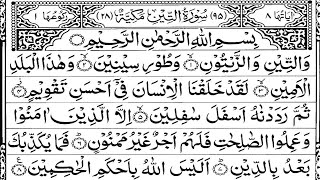 اٰيَاتُهَا ٨ (٩٥) سُوْرَةُ التِّيْنِ مَكِّيَّةٌ (٢٨) رُكُوْعُهَا ١
بِسْمِ اللّٰهِ الرَّحْمٰنِ الرَّحِيْمِ
وَالتِّيْنِ وَالزَّيْتُوْنِ ۝١ وَطُوْرِ سِيْنِيْنَ ۝٢ وَهٰذَا الْبَلَدِ
الْاَمِيْنِ ۝٣ لَقَدْ خَلَقْنَا الْاِنْسَانَ فِيْٓ اَحْسَنِ تَقْوِيْمٍ ۝٤
ثُمَّ رَدَدْنٰهُ اَسْفَلَ سٰفِلِيْنَ ۝٥ اِلَّا الَّذِيْنَ اٰمَنُوْا
وَعَمِلُوا الصّٰلِحٰتِ فَلَهُمْ اَجْرٌ غَيْرُ مَمْنُوْنٍ ۝٦ فَمَا يُكَذِّبُكَ
بَعْدُ بِالدِّيْنِ ۝٧ اَلَيْسَ اللّٰهُ بِاَحْكَمِ الْحٰكِمِيْنَ ۝٨